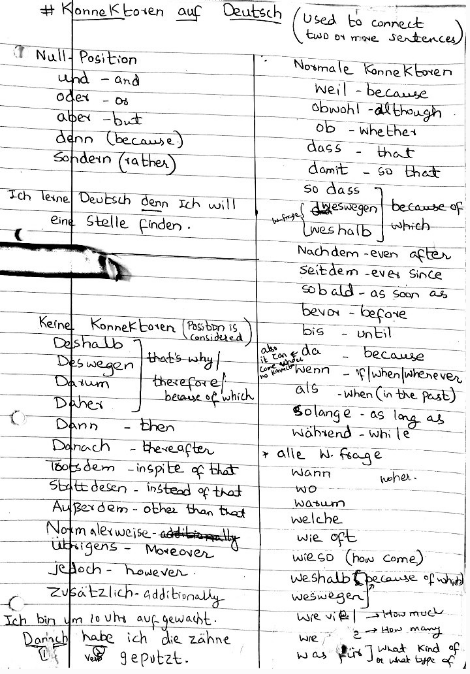 # Konnektoren auf Deutsch (Used to connect
two or more sentences)
Null-Position
und - and
oder - or
aber - but
denn (because)
Sondern (rather)
Ich lerne Deutsch denn Ich will
eine Stelle finden.
Keine Konnektoren (Position is
considered)
Deshalb
Deswegen
Darum
Daher
that's why/
therefore/
because of which
Dann - then
Danach - thereafter
Trotsdem - inspite of that
Stattdesen - instead of that
Außerdem - other than that
Normalerweise - additionally
Übrigens - Moreover
jedoch - however
Zusätzlich - additionally
Ich bin um 10 Uhr aufgewacht.
Danach habe ich die zähne
verb geputzt.
Normale Konnektoren
weil - because
obwohl - although
ob - whether
dass - that
damit - so that
so dass
weswegen
weshalb
because of
which
Nachdem - even after
seitdem - ever since
sobald - as soon as
bevor - before
bis - until
also
it can
da - because
wenn - if/when/whenever
als - when (in the past)
solange - as long as
während - while
* alle W. frage
wann
wo
woher.
warum
welche
wie oft
wieso (how come)
weshalb (because of which)
weswegen
wie viel → How much
wie 2 → How many
was für ] what kind of
or what type of